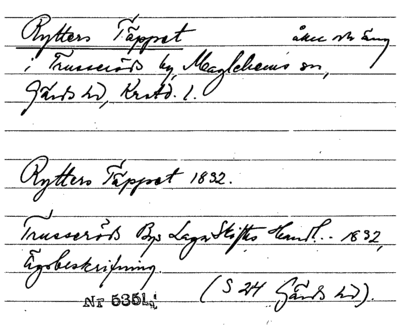 Rytters Täppet åker och äng
i Trusseröds by, Maglehems sn,
Gärds hd, Krstd. l.
Rytters Täppet 1832.
Trusseröds Bys Laga Skiftes Handl. 1832,
Egobeskrifning.
(S 24 Gärds hd).
Nr 535